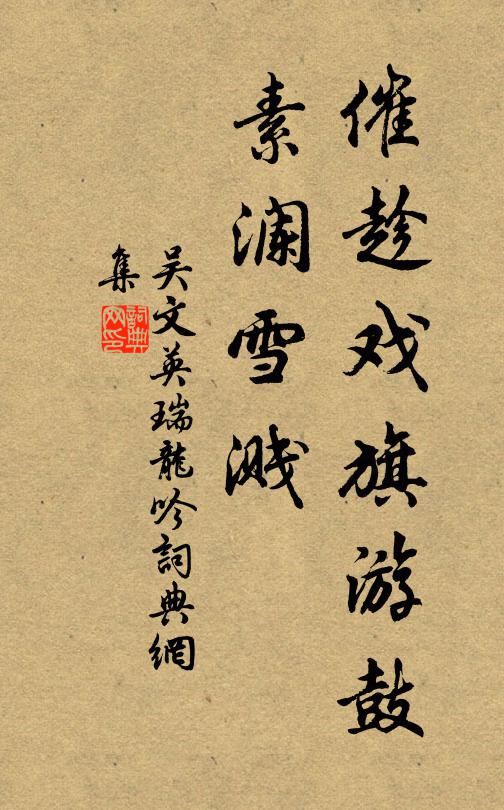 催趁戏旗游鼓
素澜雪溅
吴文英瑞龍吟詞典網
集
詞典網印